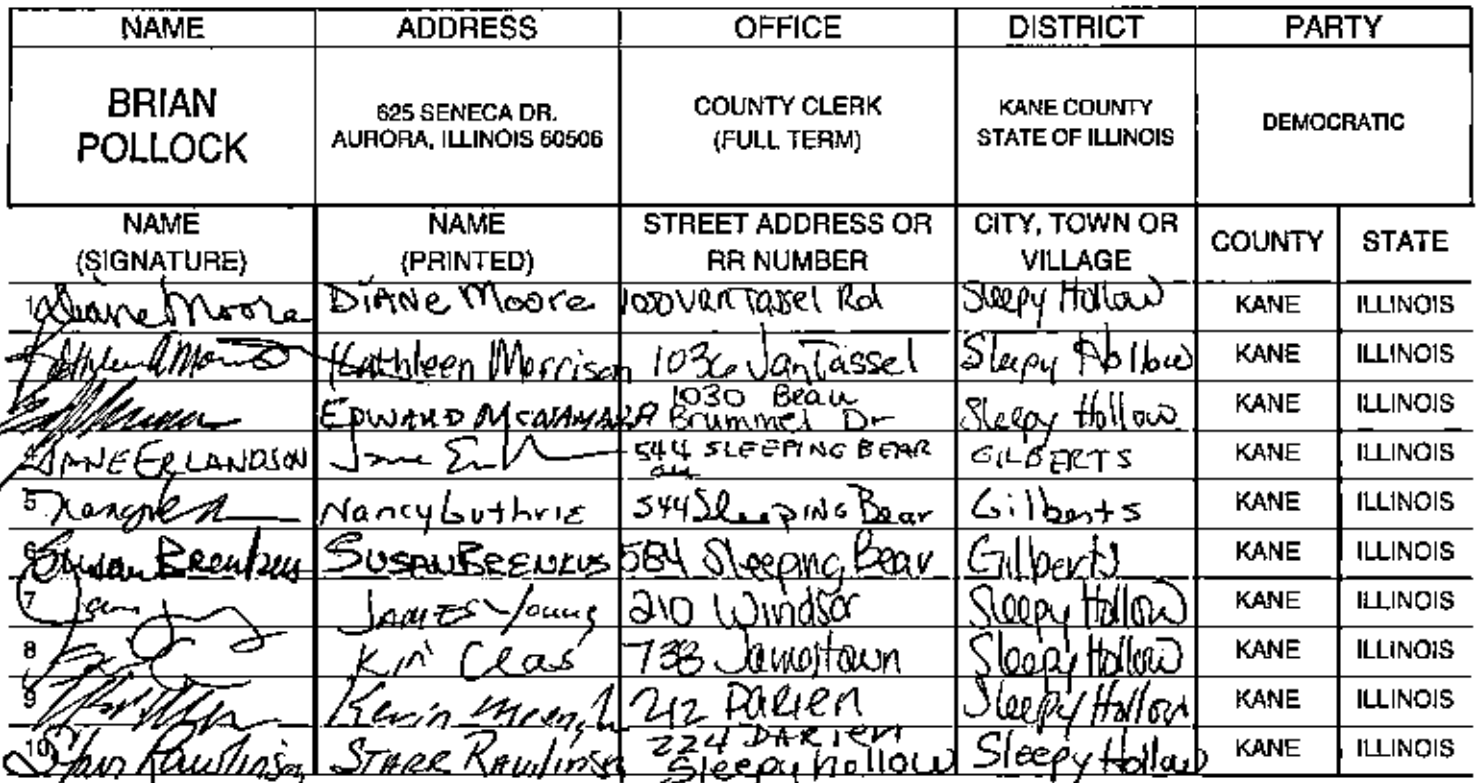 NAME ADDRESS OFFICE DISTRICT PARTY
BRIAN POLLOCK 625 SENECA DR. AURORA, ILLINOIS 60506 COUNTY CLERK (FULL TERM) KANE COUNTY STATE OF ILLINOIS DEMOCRATIC
NAME (SIGNATURE) NAME (PRINTED) STREET ADDRESS OR RR NUMBER CITY, TOWN OR VILLAGE COUNTY STATE
1 Diane Moore DIANE Moore 1080 Van Tassel Rd Sleepy Hollow KANE ILLINOIS
Kathleen Morrison 1036 Van Tassel Sleepy Hollow KANE ILLINOIS
EDWARD McNAMARA 1030 Beau Brummel Dr Sleepy Hollow KANE ILLINOIS
JANE ERLANDSON 544 SLEEPING BEAR GILBERTS KANE ILLINOIS
5 Nancy Guthrie 544 Sleeping Bear Gilberts KANE ILLINOIS
6 Susan Brenkus SUSAN BRENKUS 584 Sleeping Bear Gilberts KANE ILLINOIS
7 JAMES Young 210 Windsor Sleepy Hollow KANE ILLINOIS
8 738 Jamestown Sleepy Hollow KANE ILLINOIS
9 Kevin 212 Darien Sleepy Hollow KANE ILLINOIS
10 Starr Rawlinson STARR Rawlinson 224 DARIEN Sleepy hollow Sleepy Hollow KANE ILLINOIS